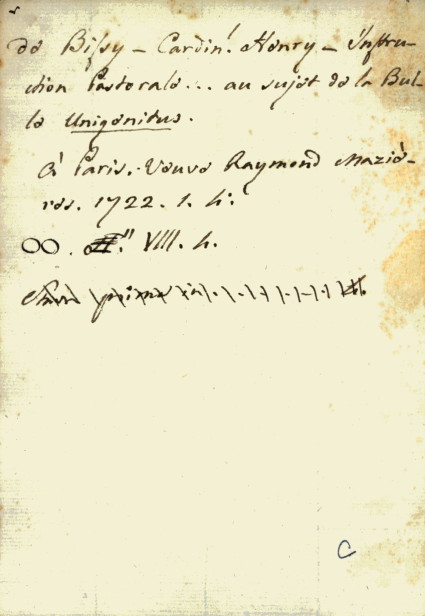 de Bissy – Cardin! Henry – Instru-
ction Pastorale... au sujet de la Bul-
le Unigenitus.
à Paris. Veuve Raymond Maziè-
res. 1722. 1. 4:
VIII. 4.
prima
C